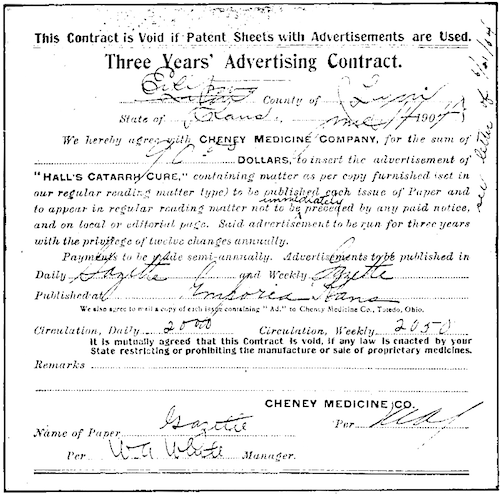 This Contract is Void if Patent Sheets with Advertisements are Used.
Three Years' Advertising Contract.
County of Lyon
State of Kans. 190
We hereby agree with CHENEY MEDICINE COMPANY, for the sum of
DOLLARS, to insert the advertisement of
"HALL'S CATARRH CURE," containing matter as per copy furnished (set in
our regular reading matter type) to be published each issue of Paper and
immediately
to appear in regular reading matter not to be preceded by any paid notice,
and on local or editorial page. Said advertisement to be run for three years
with the privilege of twelve changes annually.
Payments to be made semi-annually. Advertisements to be published in
Daily Gazette and Weekly Gazette
Published at Emporia Kans
We also agree to mail a copy of each issue containing "Ad." to Cheney Medicine Co., Toledo, Ohio.
Circulation, Daily 2000 Circulation, Weekly 2050
It is mutually agreed that this Contract is void, if any law is enacted by your
State restricting or prohibiting the manufacture or sale of proprietary medicines.
Remarks
CHENEY MEDICINE CO.
Name of Paper Gazette Per
Per W. A. White Manager.
see letter of